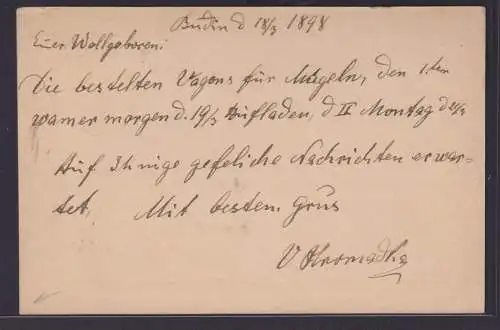 Budin d 18/3 1898
Euer Wollgeboren!
Die bestelten Vagons für Mügeln, den 1ten
wamer morgen d. 19/3 Aufladen, d II Montag d 21/3
Auf Ihnige gefeliche Nachrichten erwar-
tet. Mit bestem Grus
V Hromadka